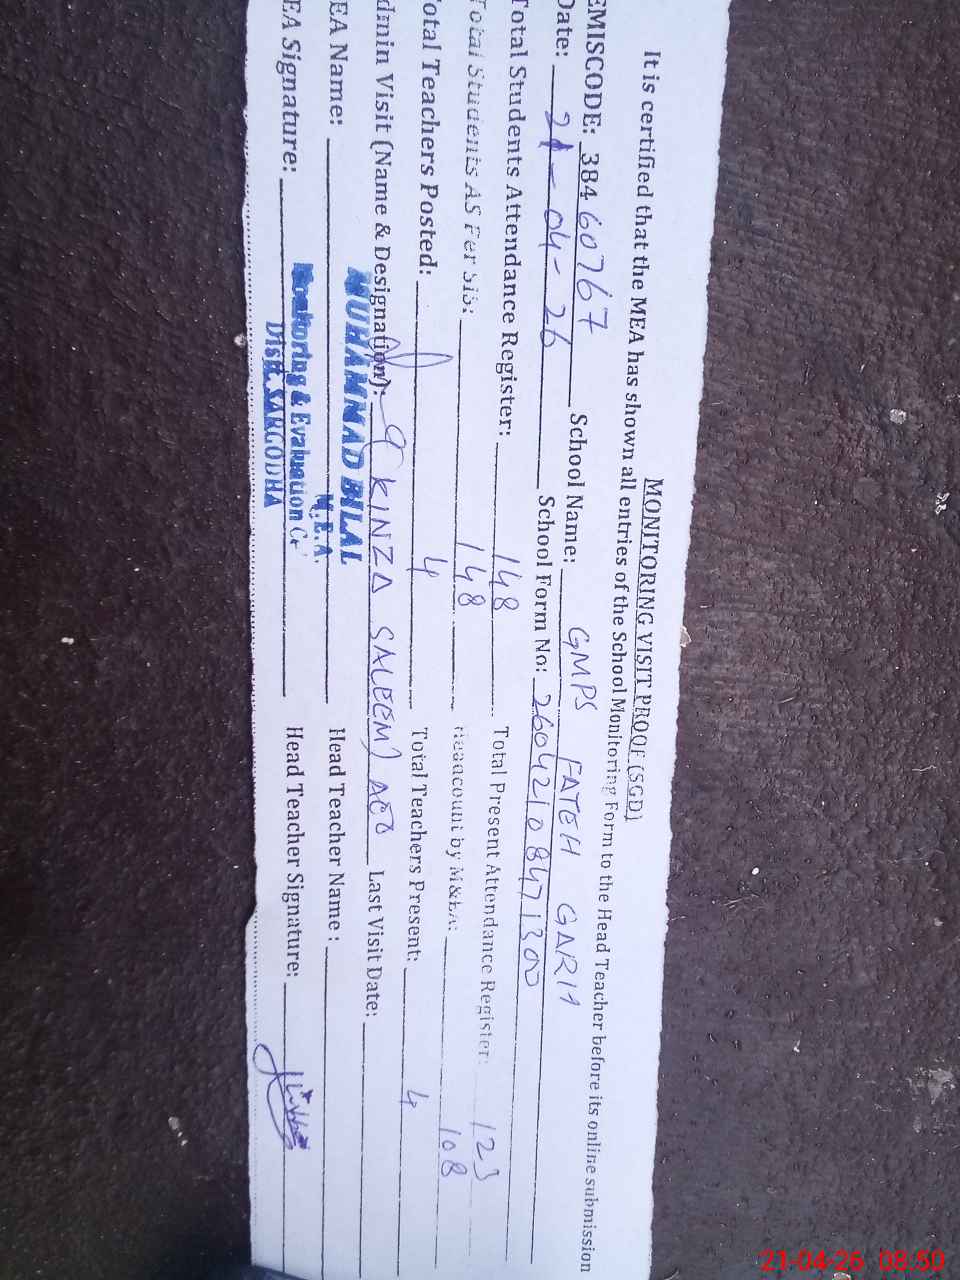 MONITORING VISIT PROOF (SGD)
It is certified that the MEA has shown all entries of the School Monitoring Form to the Head Teacher before its online submission
EMISCODE: 38460767 School Name: GMPS FATEH GARH
Date: 21-04-26 School Form No: 26042108471300
Total Students Attendance Register: 148 Total Present Attendance Register: 123
Total Students AS Per Sis: 148 Headcount by M&EA: 108
Total Teachers Posted: 4 Total Teachers Present: 4
Admin Visit (Name & Designation): KINZA SALEEM) Last Visit Date:
EA Name: MUHAMMAD BILAL Head Teacher Name :
M.E.A.
EA Signature: Monitoring & Evaluation Head Teacher Signature:
Distt. SARGODHA
21-04-26 08:50